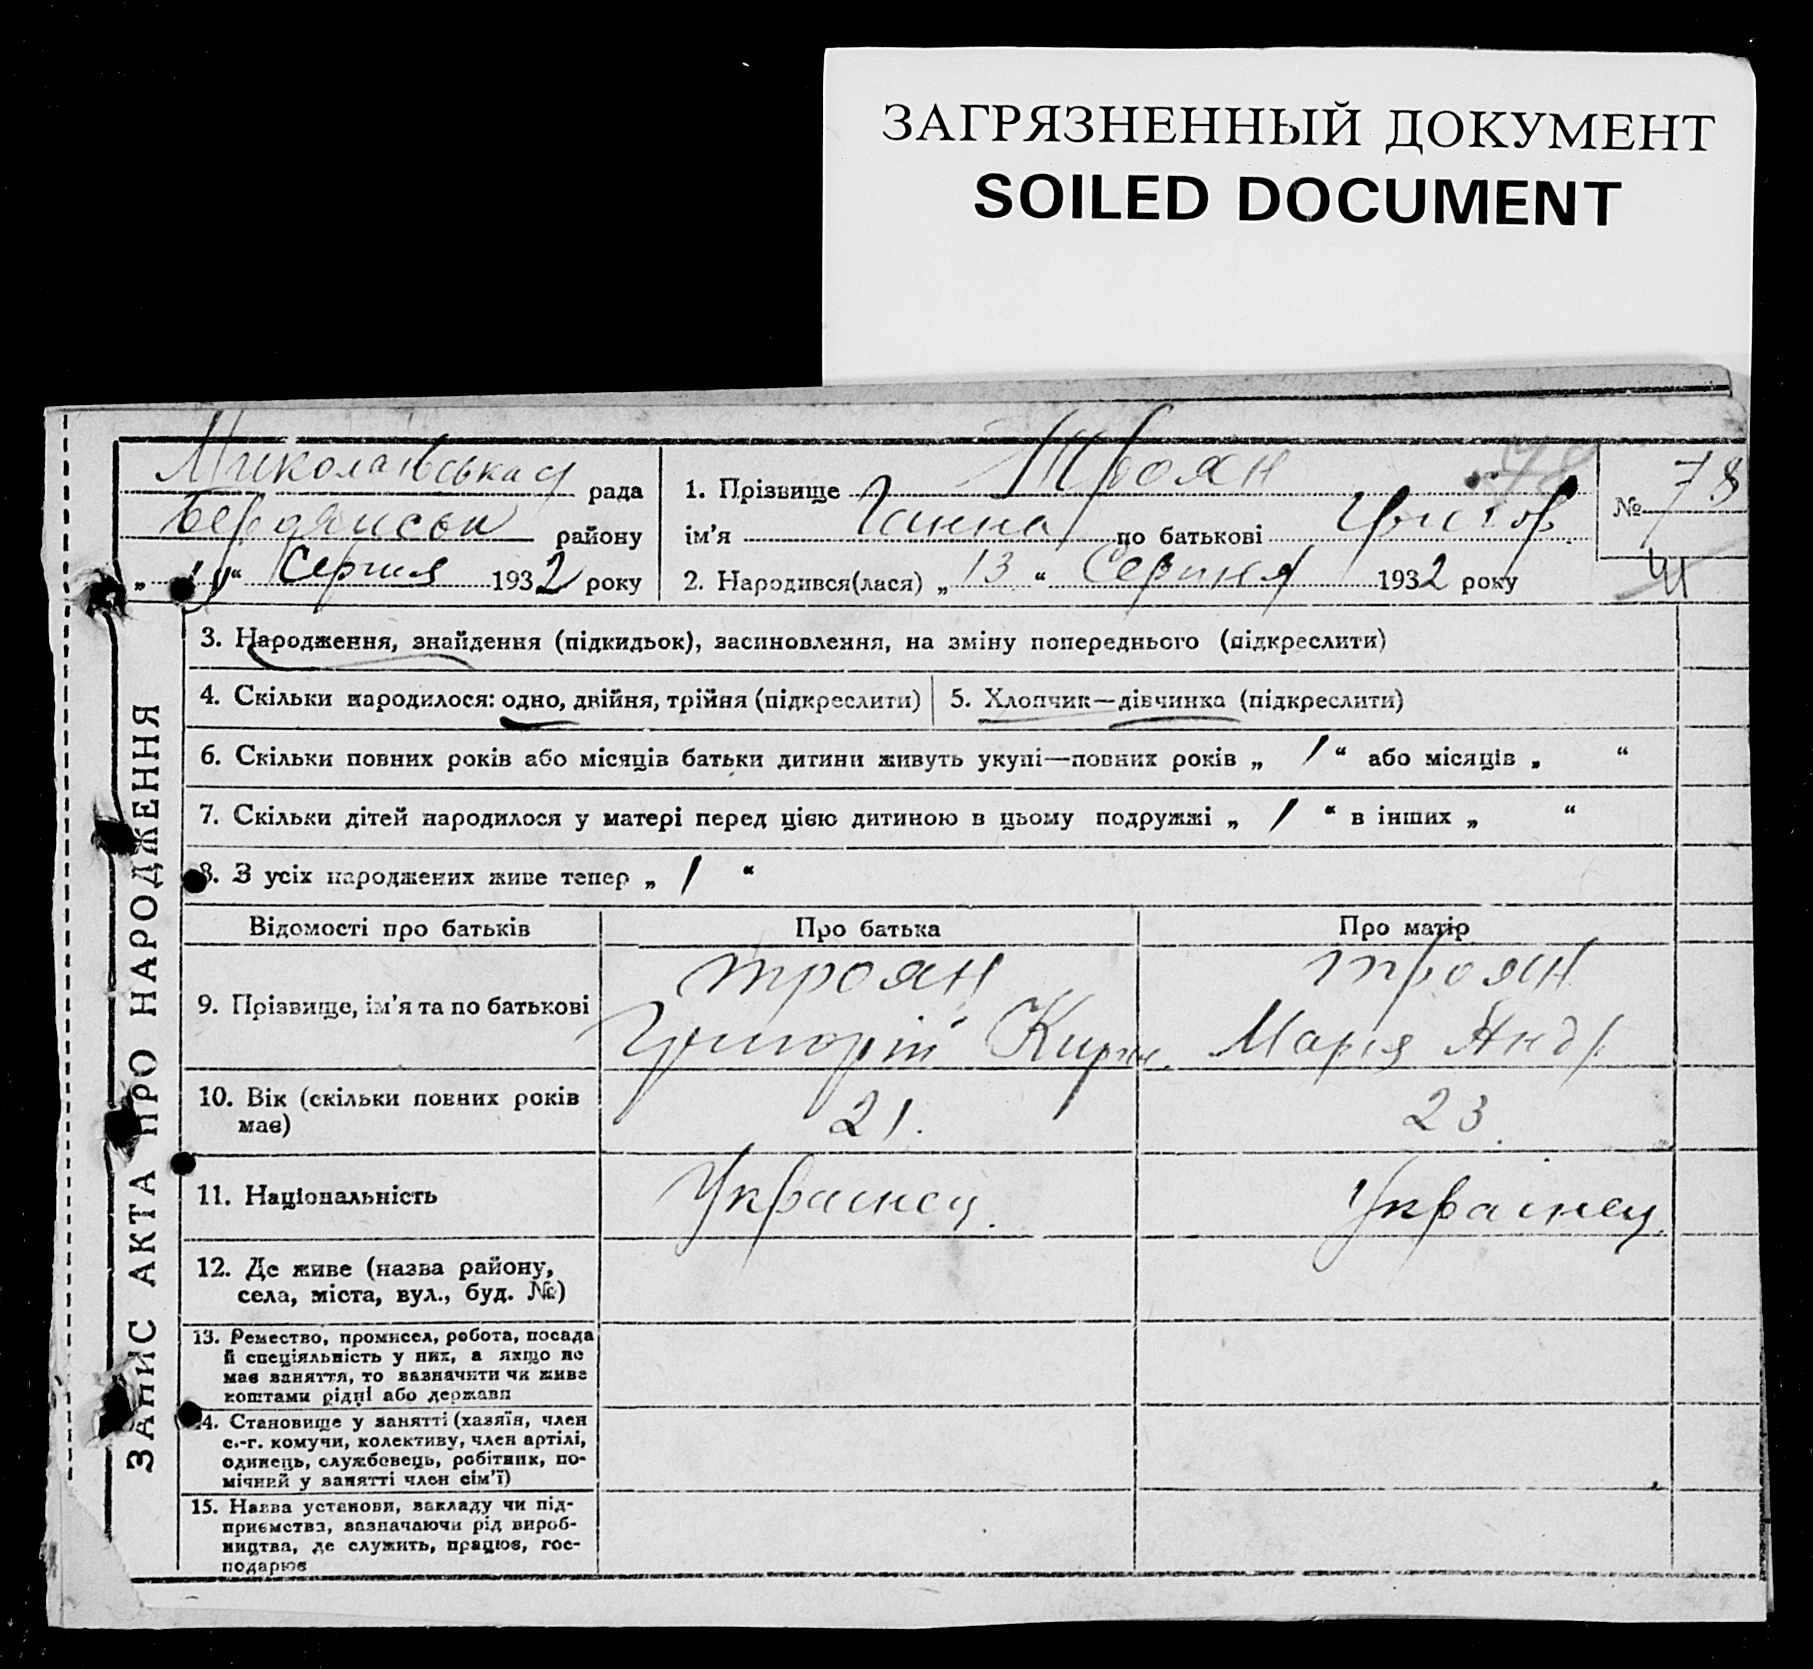 ЗАГРЯЗНЕННЫЙ ДОКУМЕНТ
SOILED DOCUMENT
Миколаївська рада
Бердянськ району
„ “ Серпня 1932 року
1. Прізвище Троян
ім'я Ганна по батькові Григор.
2. Народився(лася) „ 13 “ Серпня 1932 року
№ 78
ЗАПИС АКТА ПРО НАРОДЖЕННЯ
3. Народження, знайдення (підкидьок), засиновлення, на зміну попереднього (підкреслити)
4. Скільки народилося: одно, двійня, трійня (підкреслити)
5. Хлопчик—дівчинка (підкреслити)
6. Скільки повних років або місяців батьки дитини живуть укупі—повних років „ 1 “ або місяців „ “
7. Скільки дітей народилося у матері перед цією дитиною в цьому подружжі „ 1 “ в інших „ “
8. З усіх народжених живе тепер „ 1 “
Відомості про батьків Про батька Про матір
9. Прізвище, ім'я та по батькові
Троян
Григорій Кирил.
Троян
Марія Андр.
10. Вік (скільки повних років має)
21.
23.
11. Національність
Українец.
Українец.
12. Де живе (назва району,
села, міста, вул., буд. №)
13. Ремество, промисел, робота, посада
й спеціяльність у них, а якщо не
має заняття, то зазначити чи живе
коштами рідні або держави
14. Становище у занятті (хазяїн, член
с.-г. комуни, колективу, член артілі,
одинець, службовець, робітник, по-
мічний у занятті член сім'ї)
15. Назва установи, закладу чи під-
приємства, зазначаючи рід вироб-
ництва, де служить, працює, гос-
подарює